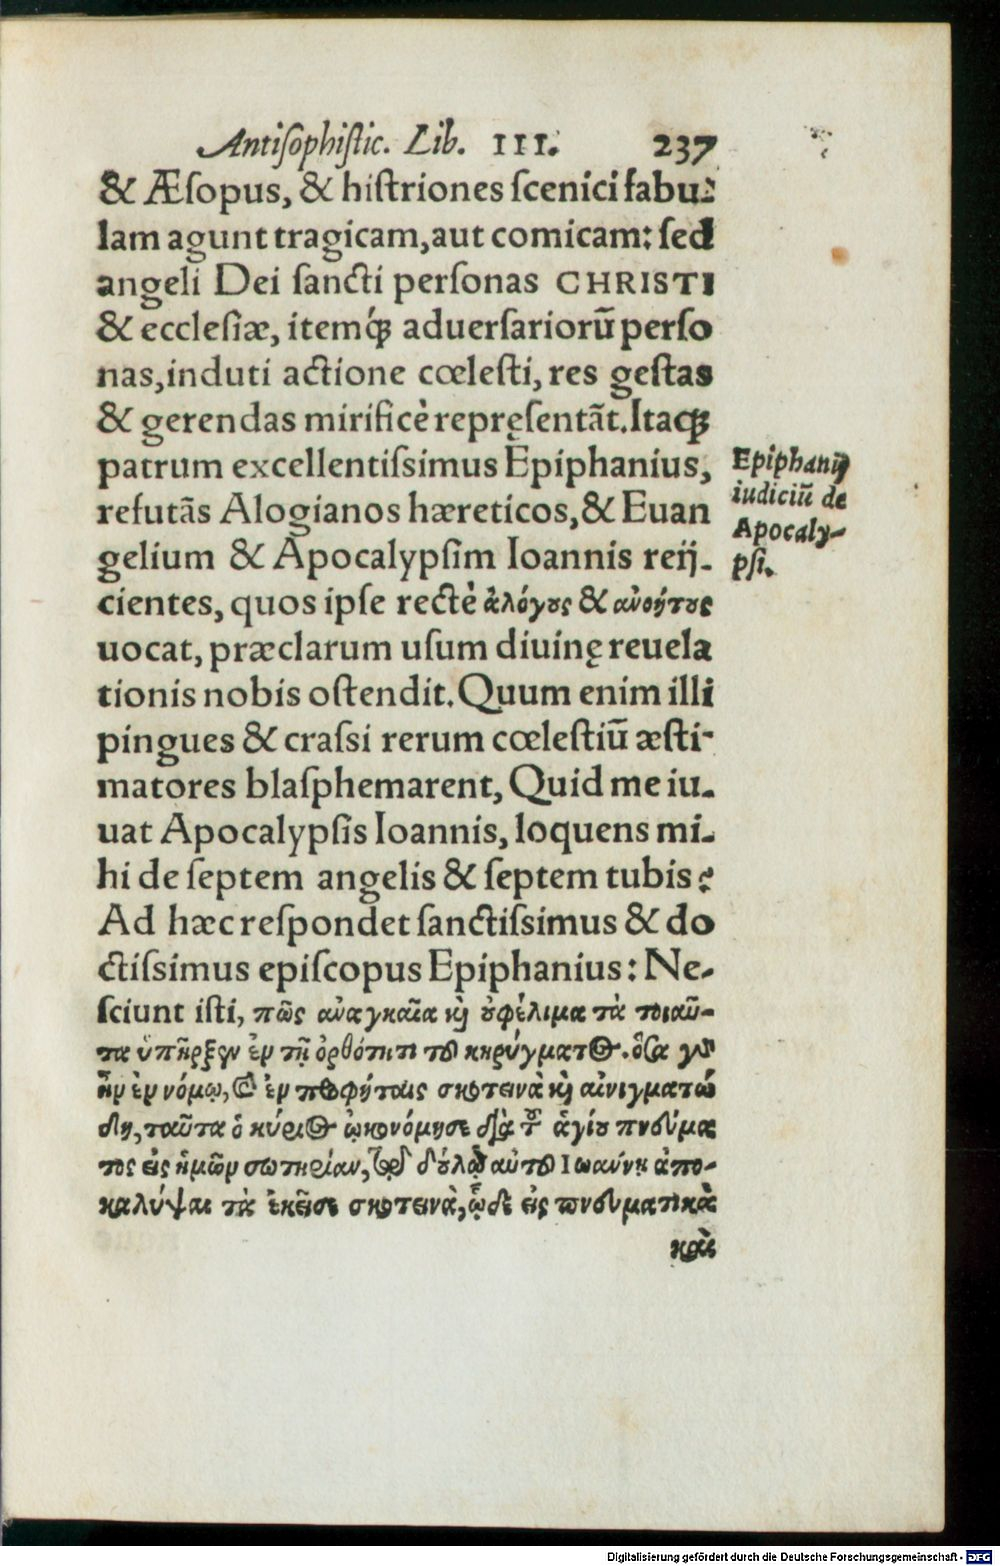 Antisophistic. Lib. III. 237
& Æsopus, & histriones scenici fabu-
lam agunt tragicam, aut comicam: sed
angeli Dei sancti personas CHRISTI
& ecclesiæ, itemq́ꝫ aduersariorũ perso
nas, induti actione cœlesti, res gestas
& gerendas mirificè repręsentãt. Itaqꝫ
patrum excellentissimus Epiphanius,
refutãs Alogianos hæreticos, & Euan
gelium & Apocalypsim Ioannis reij-
cientes, quos ipse rectè ἀλόγους & ἀνοήτους
uocat, præclarum usum diuinę reuela
tionis nobis ostendit. Quum enim illi
pingues & crassi rerum cœlestiũ æsti-
matores blasphemarent, Quid me iu-
uat Apocalypsis Ioannis, loquens mi-
hi de septem angelis & septem tubis?
Ad hæc respondet sanctissimus & do
ctissimus episcopus Epiphanius: Ne-
sciunt isti, πῶς ἀναγκαῖα καὶ ὀφέλιμα τὰ τοιαῦ-
τα ὑπῆρξεν ἐν τῇ ὀρθότητι τοῦ κηρύγματος. ὅσα γὰρ
ἦν ἐν νόμῳ, καὶ ἐν προφήταις σκοτεινὰ καὶ αἰνιγματώ
δη, ταῦτα ὁ κύριος ᾠκονόμησε διὰ τοῦ ἁγίου πνεύμα
τος εἰς ἡμῶν σωτηρίαν, τῷ δούλῳ αὐτοῦ Ιωαύνῃ ἀπο-
καλύψαι τὰ ἐκεῖσε σκοτεινὰ, ὧδε εἰς πνευματικὰ
καὶ
Epiphanij
iudiciũ de
Apocaly-
psi.
Digitalisierung gefördert durch die Deutsche Forschungsgemeinschaft - DFG